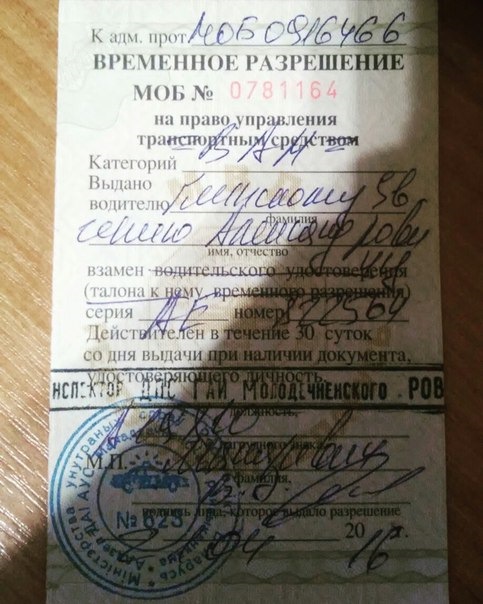 К адм. прот МОБ 0916466
ВРЕМЕННОЕ РАЗРЕШЕНИЕ
МОБ № 0781164
на право управления
транспортным средством
Категорий = В А М =
Выдано
водителю
фамилия
Александрови
имя, отчество
чу
взамен водительского удостоверения
(талона к нему временного разрешения)
серия АЕ номер 122564
Действителен в течение 30 суток
со дня выдачи при наличии документа,
удостоверяющего личность.
ИНСПЕКТОР ДПС ГАИ МОЛОДЕЧНЕНСКОГО РОВ
должность,
нагрудного знака
М.П.
фамилия,
№ 623
подпись лица, которое выдало разрешение
2 04 20 16 г.